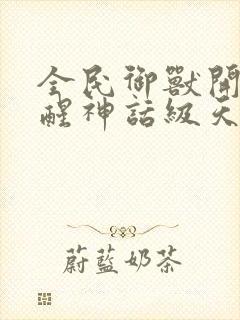 全民御獸開
醒神話級天
蔚藍奶茶